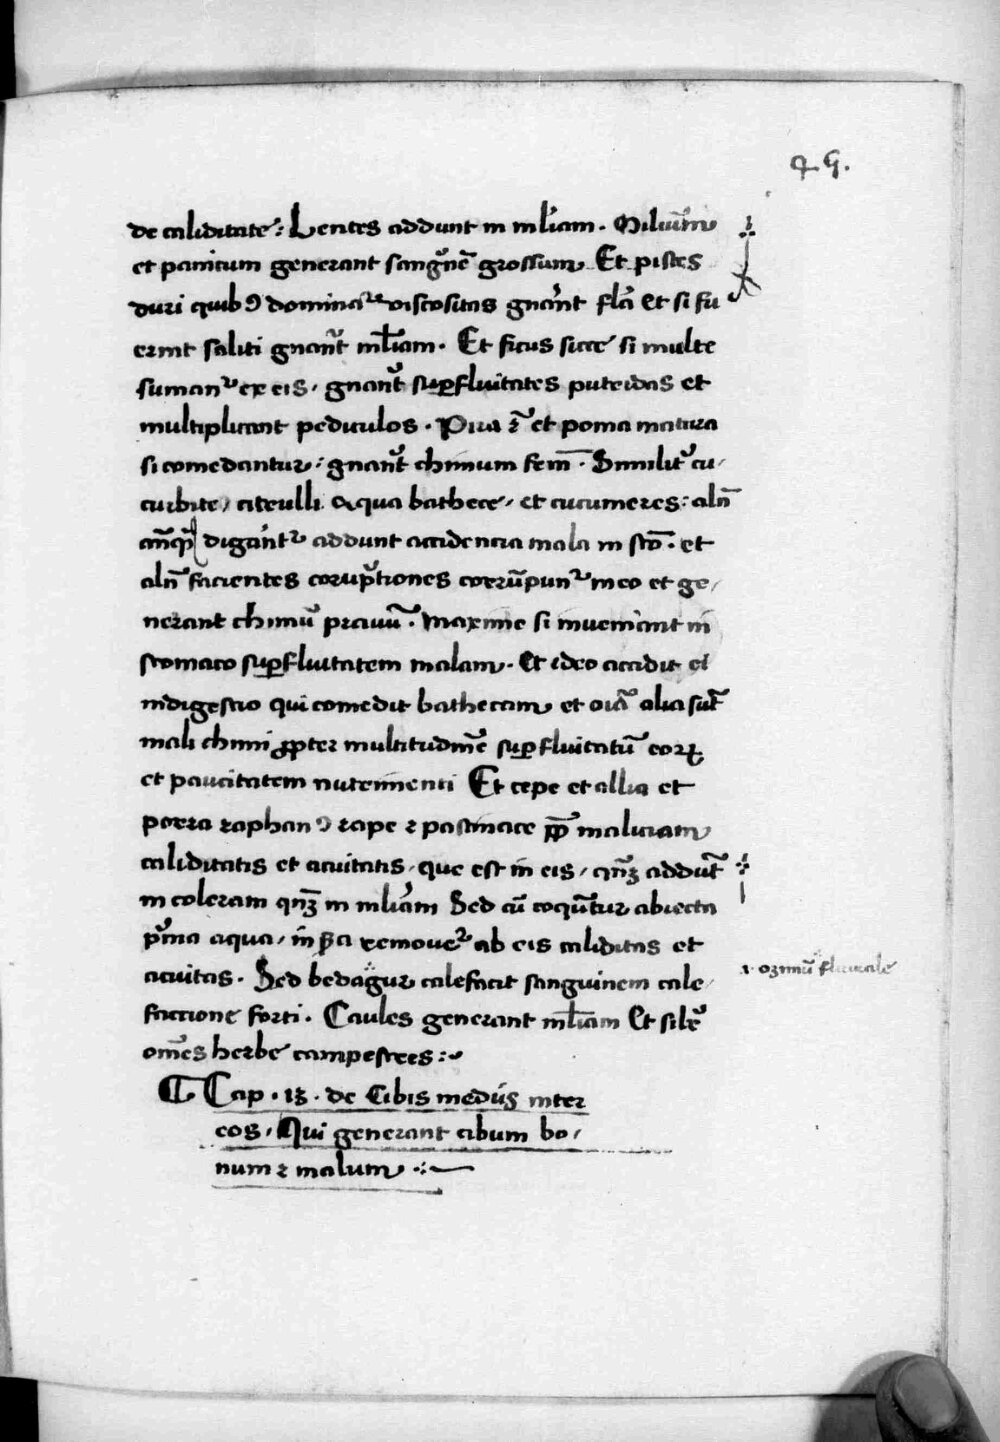 49.
de caliditate: Lentes addunt in ml̄iam. Miliuȝ
et panicum generant sangͥnē grossum Et pistes
duri quibꝯ dominat᷑ viscositas gnāńt fla᷑ Et si fu
erint saliti gnant᷑ ml̄iam. Et ficus sicce si multe
suman᷑ ex eis, gnant᷑ suꝑfluitates puteidas et
multiplicant peduculos. Pira ⁊ et poma matura
si comedantur: gnant᷑ chimum Similit᷑ cu,
curbite, citrulli aqua bathece, et cucumeres: aln̄
digāńt᷑ addunt accidencia mala in sto᷑. et
aln̄ facientes corup̄tiones corrūpun᷑ in eo et ge,
nerant chimū pravū. Maxime si invenīant in
stomaco suꝑfluitatem malam. Et ideo accidit ei
indigestio qui comedit bathecam et oīa alia sūt
mali chimi ꝓpter multitudinē suꝑfluitatū eoꝝ
et paucitatem nutrimenti Et cepe et allia et
porra raphanꝯ rape ⁊ pastinace ꝓp̄ maliciam
caliditatis et acuitatis, que est in eis, qn̄ȝ addūt
in coleram qn̄ȝ in ml̄iam Sed cū coquūtur abiecta
pͥma aqua, in ſcᷓa remove᷑ ab eis caliditas et
acuitas. Sed bedagur calefacit sanguinem cale,
factione forti. Caules generant ml̄iam Et silr᷑
om̄es herbe campestres:
⁊. ozimū fluviale
¶ Cap. 13. de Cibis medijs inter
eos, Qui generant cibum bo,
num ⁊ malum